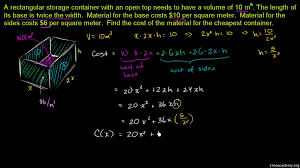 A rectangular storage container with an open top needs to have a volume of 10 m³. The length of
its base is twice the width. Material for the base costs $10 per square meter. Material for the
sides costs $6 per square meter. Find the cost of the material for the cheapest container.
V = 10m³ x·2x·h = 10 ⇒ 2x²h = 10 ⇒ h = 10/2x²
h = 5/x²
Cost = 10·x·2x + 2·6xh + 2·6·2x·h
cost of base
cost of sides
= 20x² + 12xh + 24xh
= 20x² + 36xh
= 20x² + 36x(5/x²)
C(x) = 20x² +
h
x
2x